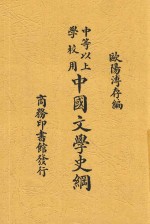 歐陽溥存編
中等以上
學校用
中國文學史綱
商務印書館發行